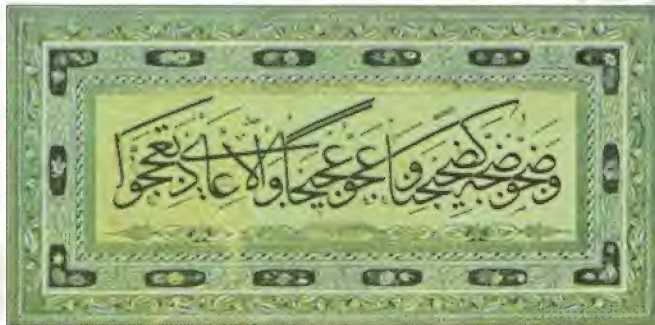 وضجو ضجة كضجيجنا وا عجو عجيجا والاعادي تعججوا